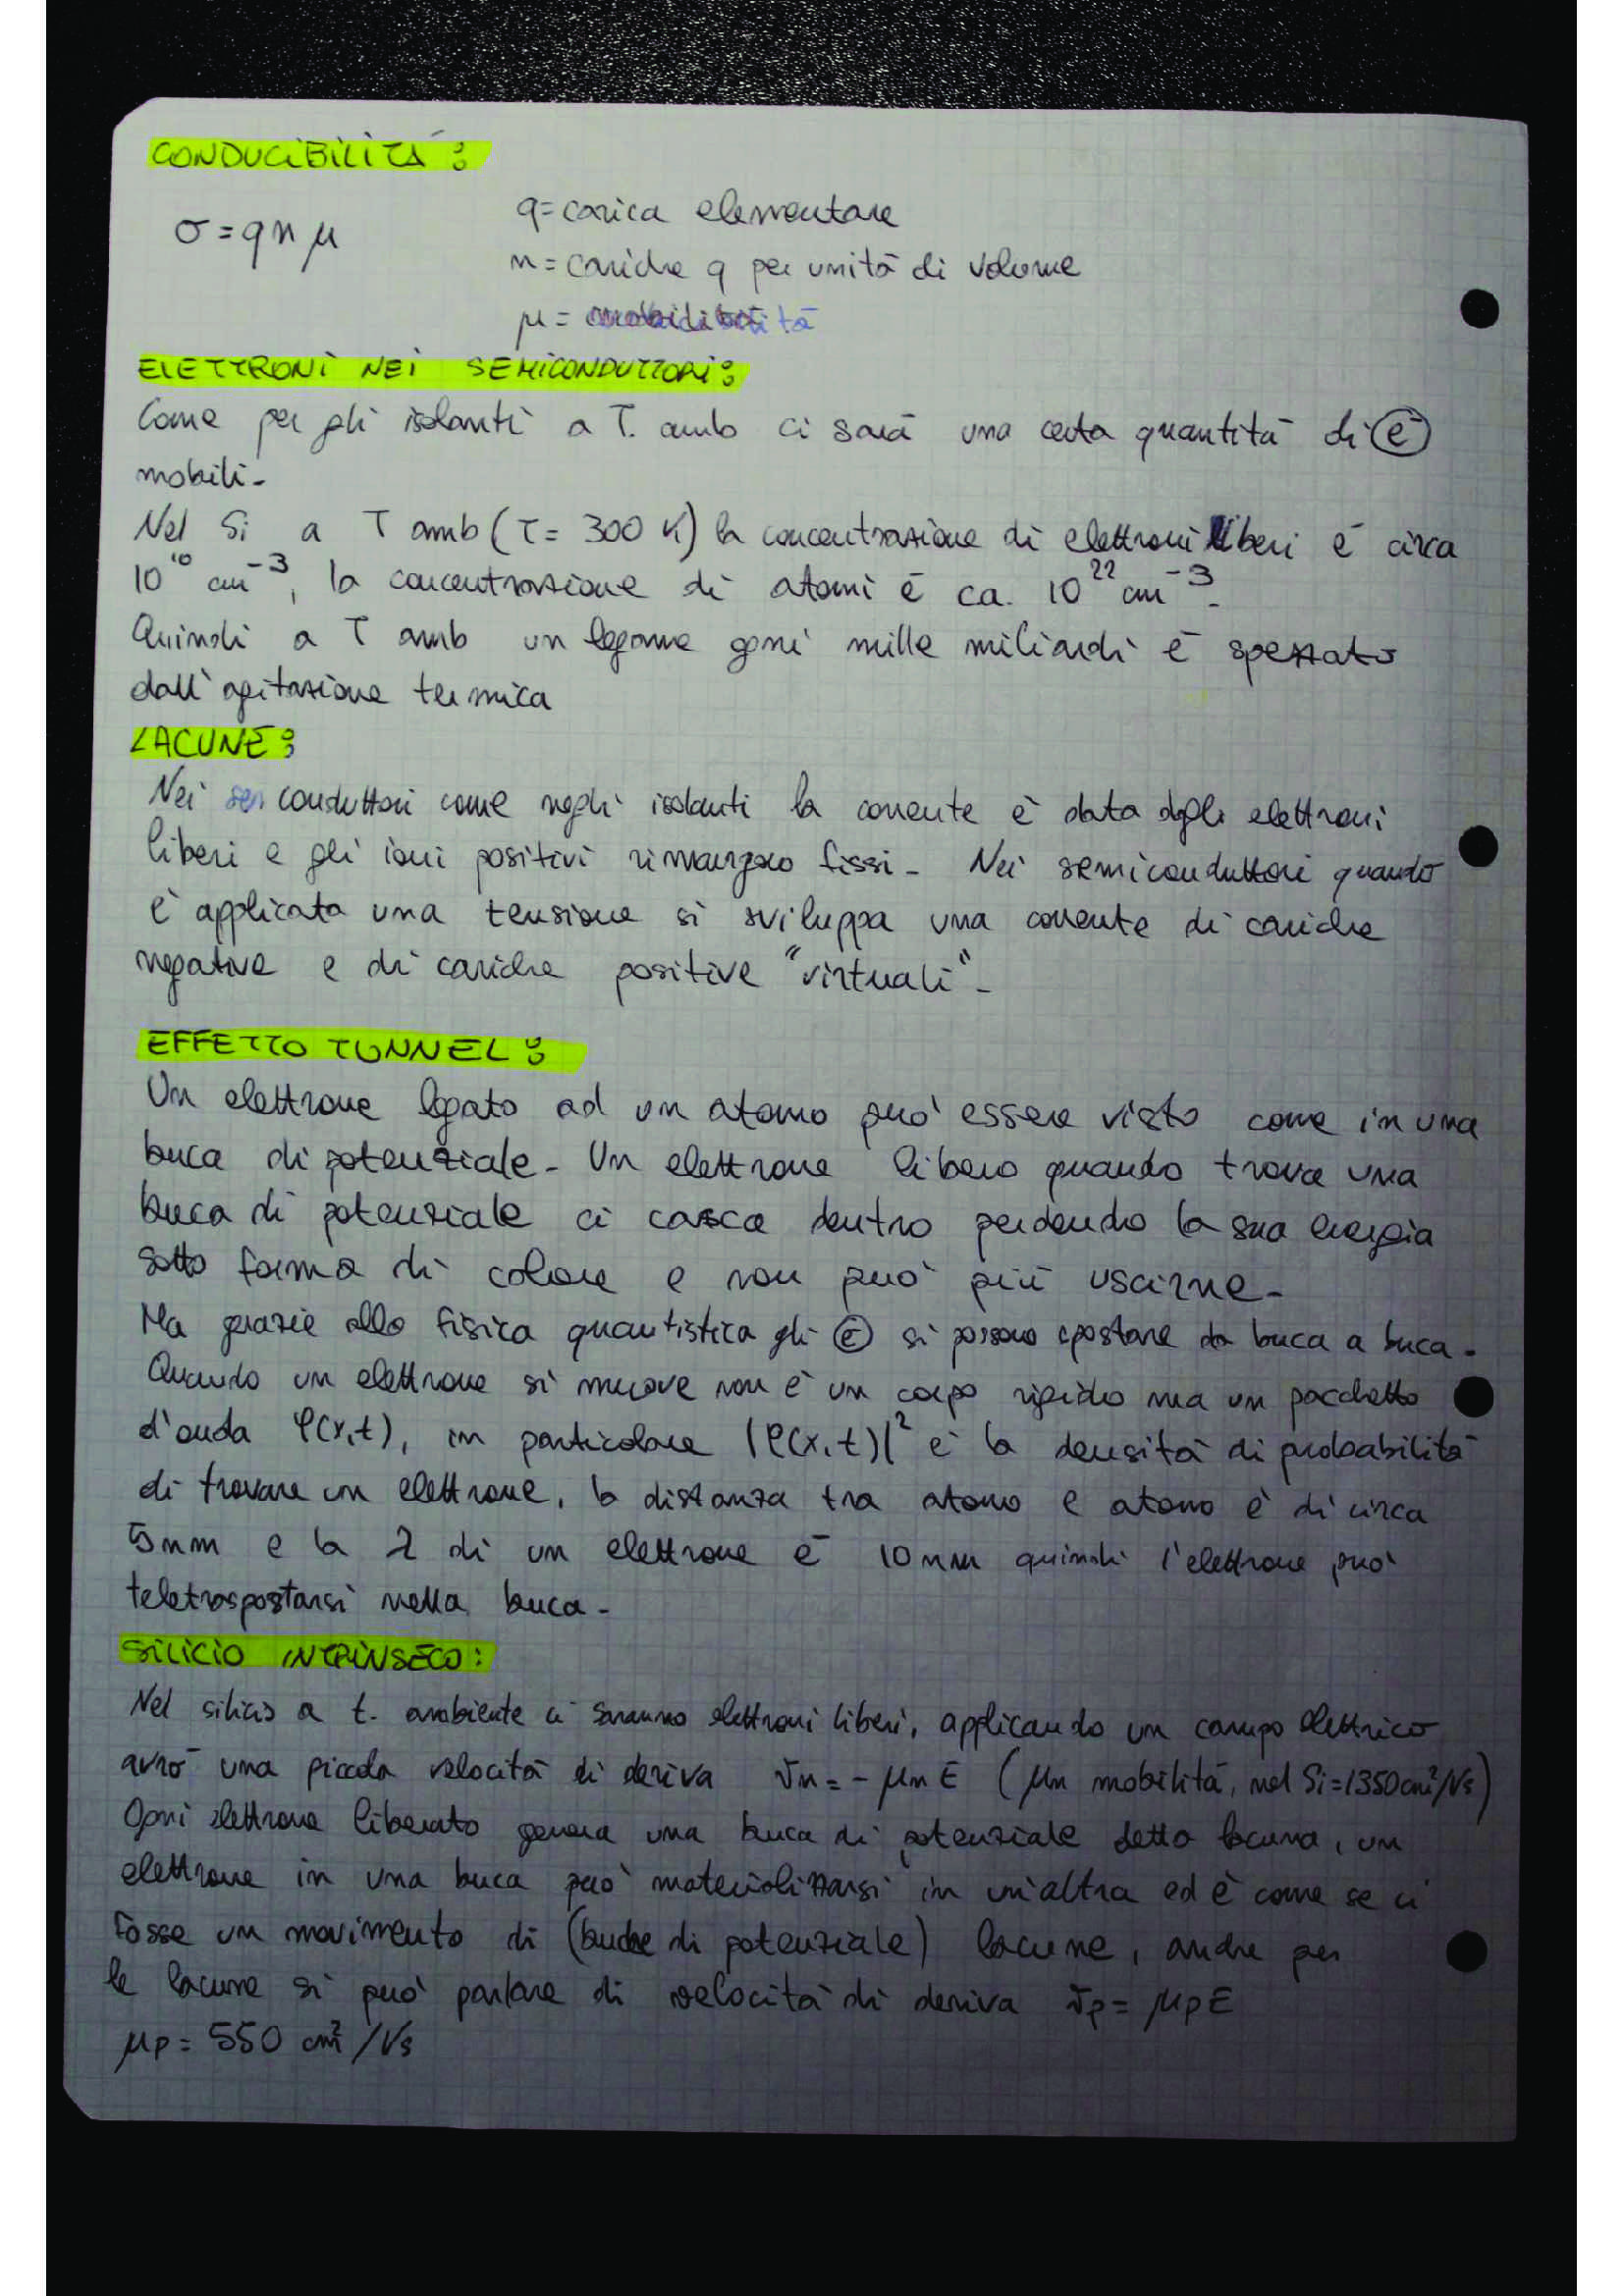 CONDUCIBILITÀ:
σ = q n μ
q = carica elementare
n = cariche q per unità di volume
μ = mobilità
ELETTRONI NEI SEMICONDUTTORI:
Come per gli isolanti a T. amb ci sarà una certa quantità di e⁻
mobili -
Nel Si a T amb (T = 300 K) la concentrazione di elettroni liberi è circa
10¹⁰ cm⁻³, la concentrazione di atomi è ca. 10²² cm⁻³.
Quindi a T amb un legame ogni mille miliardi è spezzato
dall'agitazione termica
LACUNE:
Nei semiconduttori come negli isolanti la corrente è data dagli elettroni
liberi e gli ioni positivi rimangono fissi - Nei semiconduttori quando
è applicata una tensione si sviluppa una corrente di cariche
negative e di cariche positive "virtuali" -
EFFETTO TUNNEL:
Un elettrone legato ad un atomo può essere visto come in una
buca di potenziale - Un elettrone libero quando trova una
buca di potenziale ci casca dentro perdendo la sua energia
sotto forma di calore e non può più uscirne -
Ma grazie alla fisica quantistica gli e⁻ si possono spostare da buca a buca.
Quando un elettrone si muove non è un corpo rigido ma un pacchetto
d'onda φ(x,t), in particolare |φ(x,t)|² è la densità di probabilità
di trovare un elettrone, la distanza tra atomo e atomo è di circa
5nm e la λ di un elettrone è 10nm quindi l'elettrone può
teletraspostarsi nella buca -
SILICIO INTRINSECO:
Nel silicio a t. ambiente ci saranno elettroni liberi, applicando un campo elettrico
avrò una piccola velocità di deriva vn = - μn E (μn mobilità, nel Si = 1350 cm²/Vs)
Ogni elettrone liberato genera una buca di potenziale detto lacuna, un
elettrone in una buca può materializzarsi in un'altra ed è come se ci
fosse un movimento di (buche di potenziale) lacune, anche per
le lacune si può parlare di velocità di deriva vp = μp E
μp = 550 cm²/Vs